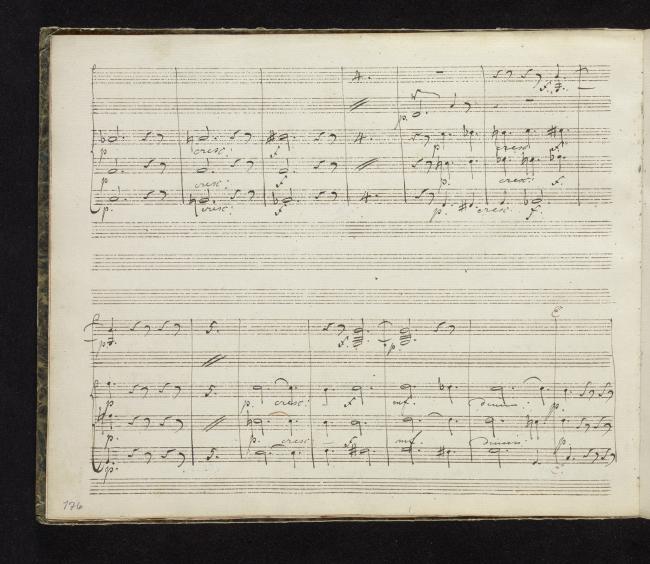 f.
p.
cresc: f. p. cresc: f.
p cresc: f p. cresc: f.
p. cresc: f p. cresc. f.
p f. p.
p p. cresc: f mf. dim: p.
p. p. cresc f. mf. dimin p.
p.
176